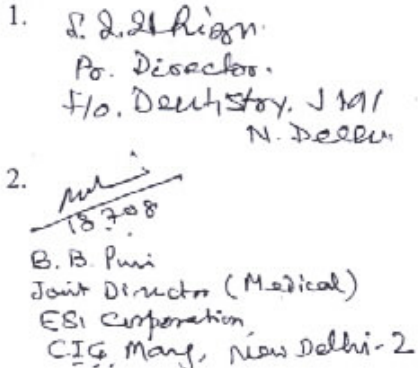 1.
Director.
F/o. Dentistry. JMI
N. Delhi
2.
18.7.08
B. B. Puri
Joint Director (Medical)
ESI Corporation
C.I.G. Marg, New Delhi-2